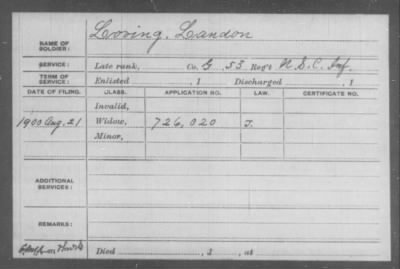 NAME OF SOLDIER: Loving, Landon
SERVICE: Late rank, Co. G 53 Reg't U.S.C. Inf.
TERM OF SERVICE: Enlisted , 1 Discharged , 1
DATE OF FILING. CLASS. APPLICATION NO. LAW. CERTIFICATE NO.
Invalid,
1900 Aug. 21 Widow, 726,020 J.
Minor,
ADDITIONAL SERVICES:
REMARKS:
Died , 1 , at